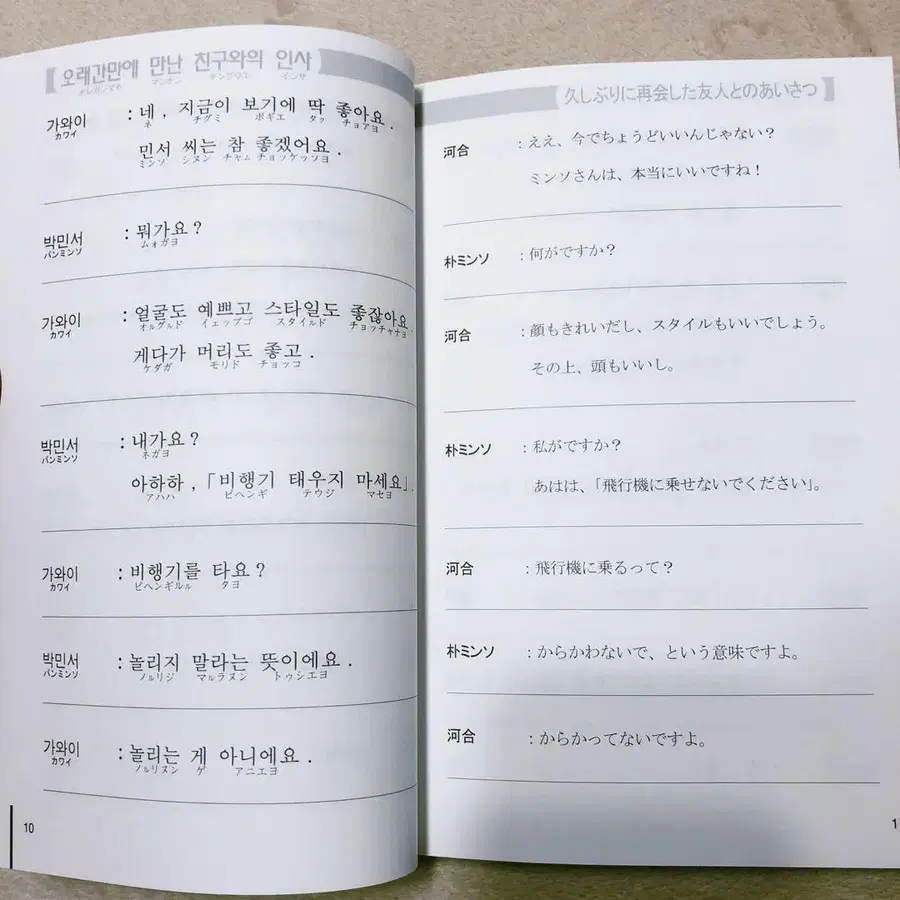 【오래간만에 만난 친구와의 인사
オレガンマネ マンナン チングワエ インサ
가와이 : 네, 지금이 보기에 딱 좋아요.
カワイ ネ チグミ ボギエ タㇰ チョアヨ
민서 씨는 참 좋겠어요.
ミンソ シヌン チャㇺ チョッケッソヨ
박민서 : 뭐가요?
パンミンソ ムォガヨ
가와이 : 얼굴도 예쁘고 스타일도 좋잖아요.
カワイ オルグルド イェップゴ スタイルド チョッチャナヨ
게다가 머리도 좋고.
ケダガ モリド チョッコ
박민서 : 내가요?
パンミンソ ネガヨ
아하하, 「비행기 태우지 마세요」.
アハハ ピヘンギ テウジ マセヨ
가와이 : 비행기를 타요?
カワイ ピヘンギルㇽ タヨ
박민서 : 놀리지 말라는 뜻이에요.
パンミンソ ノㇽリジ マㇽラヌン トゥシエヨ
가와이 : 놀리는 게 아니에요.
カワイ ノㇽリヌン ゲ アニエヨ
10
久しぶりに再会した友人とのあいさつ】
河合 : ええ、今でちょうどいいんじゃない?
ミンソさんは、本当にいいですね!
朴ミンソ : 何がですか?
河合 : 顔もきれいだし、スタイルもいいでしょう。
その上、頭もいいし。
朴ミンソ : 私がですか?
あはは、「飛行機に乗せないでください」。
河合 : 飛行機に乗るって?
朴ミンソ : からかわないで、という意味ですよ。
河合 : からかってないですよ。